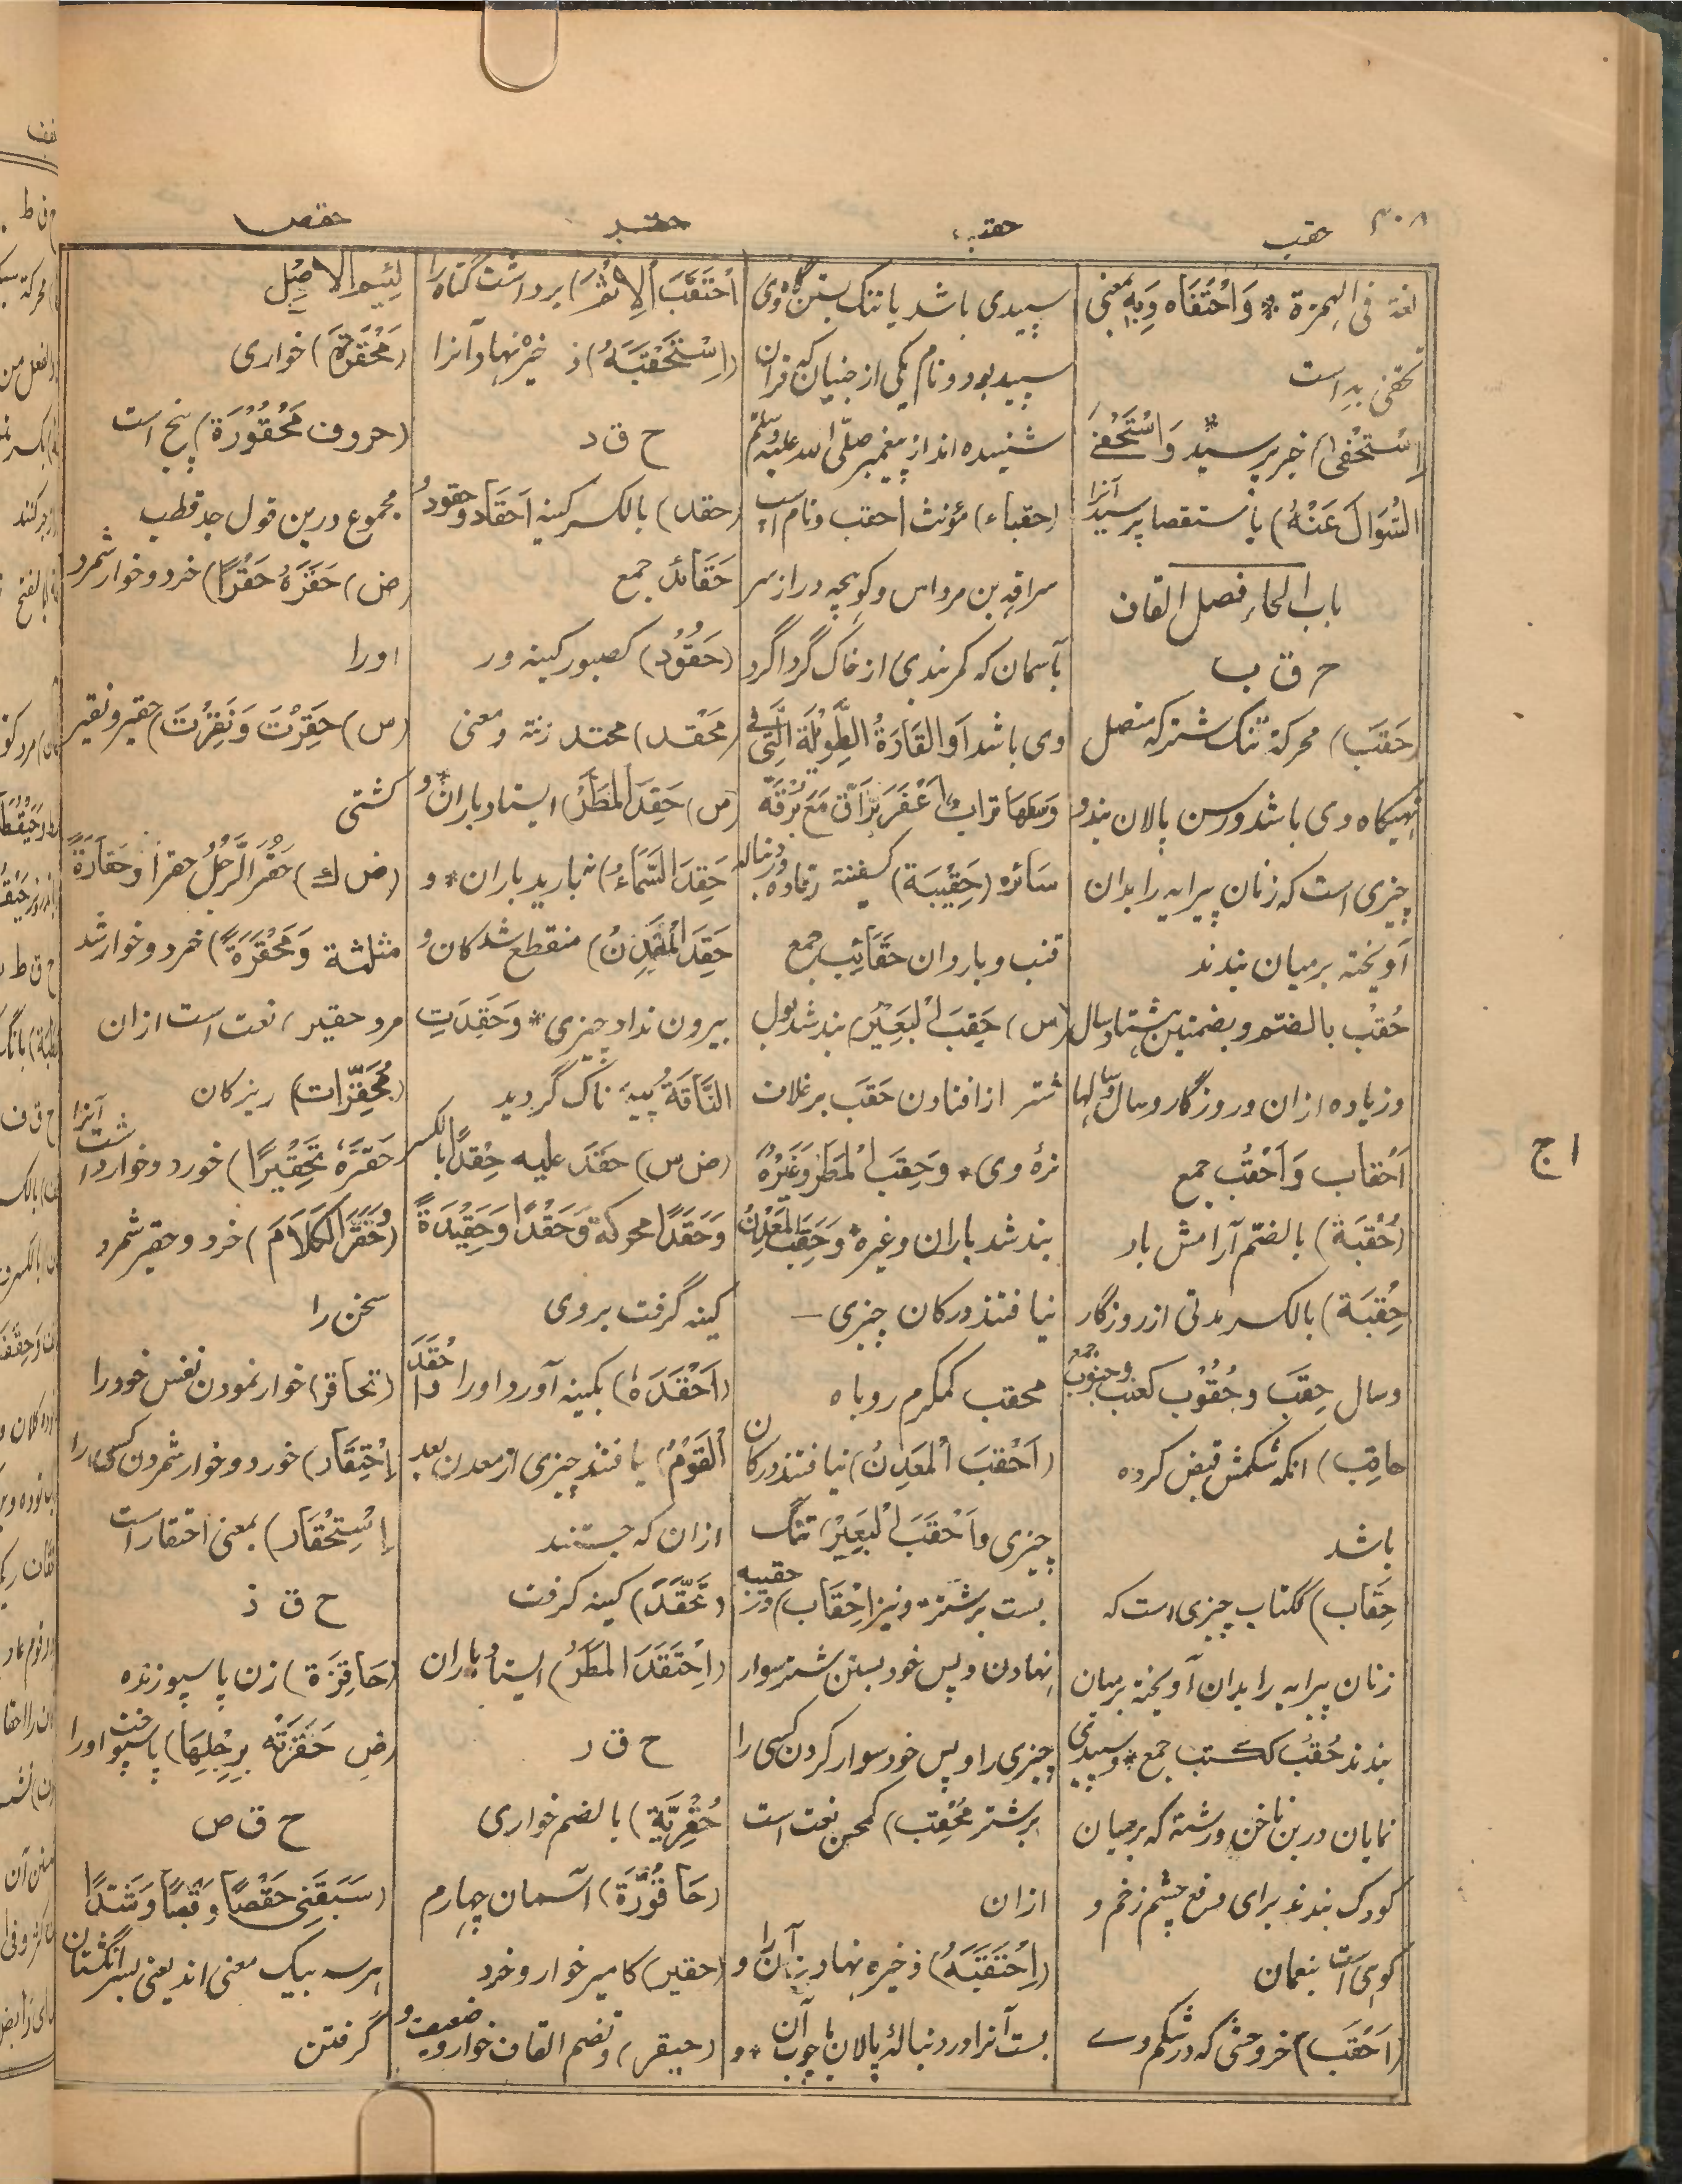 ۳۰۸
حقب
حقب
حقد
حقص
لغة فی الهمزة * وَاحْتَفَاه وَبِهِ بمعنی
تحفّی بِهِ است
اِسْتَحْفٰی) خبر پرسید * وَاسْتَحْفٰے
السُّوَالَ عَنْهُ) باستقصا پرسید آنرا
باب الحاء فصل القاف
ح ق ب
(حَقَب) محرکة تنگ شتر که متصل
تهیگاه وی باشد ورسن پالان بند و
چیزی است که زنان پیرایه را بدان
آویخته برمیان بندند
حُقْب بالضم و بضمتین هشتاد سال
وزیاده ازان و روزگار و سال و سالها
اَحْقاب وَاَحْقُب جمع
(حُقْبَة) بالضم آرامش باد
حِقْبَة) بالکسر مدتی از روزگار
وسال حِقَب وحُقُوْب کعنب وحبوب جمع
حاقِب) انکه شکمش قبض کرده
باشد
حِقَاب) ککتاب چیزی است که
زنان پیرایه را بدان آویخته برمیان
بندند حُقُب ککتب جمع * و سپیدی
نمایان در بن ناخن و رشته که برمیان
کودک بندند برای دفع چشم زخم و
کوهی است بنعمان
(اَحْقَب) خر وحشی که در شکم وے
سپیدی باشد یا تنگ بستن گاه وی
سپید بود و نام یکی از جنیان که قرآن
شنیده اند از پیغمبر صلّی الله علیه وسلّم
(حقباء) مؤنث احقب و نام اسپ
سراقه بن مرداس وکوهچه دراز سر
بآسمان که کمربندی از خاک گرداگرد
وی باشد اَوالقَارَةُ الطَّوِیْلَةُ الَّتِی فی
وَسَطِهَا تُرابٌ اَعْفَرُ بَرَّاقٌ مَعَ بُرْقَة
سَائره (حَقِیْبَة) کسفینة رفاده دنباله
قتب و باردان حَقَائِب جمع
(س) حَقِبَ الْبَعِیْرُ) بند شد بول
شتر از افتادن حَقَب بر غلاف
نرهٔ وی * وَحَقِبَ الْمَطَرُ وَغَیْرُهُ
بند شد باران و غیره * وَحَقِبَ الْمَعْدِنُ
نیافتند در کان چیزی
محقب کمکرم روباه
(اَحْقَبَ الْمَعْدِنُ) نیافتند در کان
چیزی واَحْقَبَ الْبَعِیْرَ) تنگ
بست بر شتر * و نیز اِحْقَاب) در حقیبه
نهادن و پس خود بستن شتر سوار
چیزی را و پس خود سوار کردن کسی را
بر شتر مُحْقِب) کمحسن نعت است
ازان
(اِحْتَقَبَهُ) ذخیره نهاد آن را و
بست آنرا در دنبالهٔ پالان یا چوب آن * و
اِحْتَقَبَ الاِثْمَ) برداشت گناه را
(اِسْتَحْقَبَهُ) ذخیره نهاد آنرا
ح ق د
(حقد) بالکسر کینه اَحْقَاد و حقود و
حَقَائد جمع
(حَقُوْد) کصبور کینه ور
(مَحْقد) محتد زنة و معنی
(س) حَقِدَ المَطَرُ) ایستاد باران * و
حَقِدَ السَّمَاءُ) نبارید باران * و
حَقِدَ الْمَعْدِنُ) منقطع شد کان و
بیرون نداد چیزی * وَحَقِدَتِ
النَّاقَةُ پیه ناک گردید
(ض س) حَقَدَ علیه حِقْدًا بالکسر
وَحَقَدًا محرکة وَحَقْدًا وَحَقِیْدَةً
کینه گرفت بر وی
(اَحْقَدَهُ) بکینه آورد اورا * و اَحْقَدَ
الْقَوْمُ) یافتند چیزی از معدن بعد
ازان که جستند
(تَحَقَّدَ) کینه گرفت
(اِحْتَقَدَ المَطَرُ) ایستاد باران
ح ق ر
حُقْرِیَّة) بالضم خواری
(حَاقُوْرَة) آسمان چهارم
(حقیر) کامیر خوار و خرد
(حیقر) و تضم القاف خوار و ضعیف و
لَئِیْم الاصْل
(مَحْقَرَة) خواری
(حروف مَحْقُوْرَة) پنج است
مجموع درین قول جد قطب
(ض) حَقَرَهُ حَقْرًا) خرد و خوار شمرد
اورا
(س) حَقِرْتَ وَنَقِرْتَ) حقیر و نقیر
گشتی
(ض ك) حَقُرَ الرَّجُلُ حقرًا وحَقَارَةً
مثلثة وَمَحْقَرَةً) خرد و خوار شد
مرد حقیر، نعت است ازان
(مُحَقَّرات) ریزگان
حَقَّرَهُ تَحْقِیْرًا) خورد و خوار داشت آنرا
(وحَقَّرَ الكَلاَمَ) خرد و حقیر شمرد
سخن را
(تحاقر) خوار نمودن نفس خود را
اِحْتِقَار) خورد و خوار شمردن کسی را
اِسْتِحْقَار) بمعنی احتقار است
ح ق ز
(حَاقِزَة) زن پا سپوزنده
(ض حَقَزَتْه بِرِجْلِهَا) پا سپوخت اورا
ح ق ص
(سَبَقَنِی حَقْصًا وَقَبْصًا وَشَدًّا
هر سه بیک معنی اند یعنی بسر انگشتان
گرفتن
ا ج